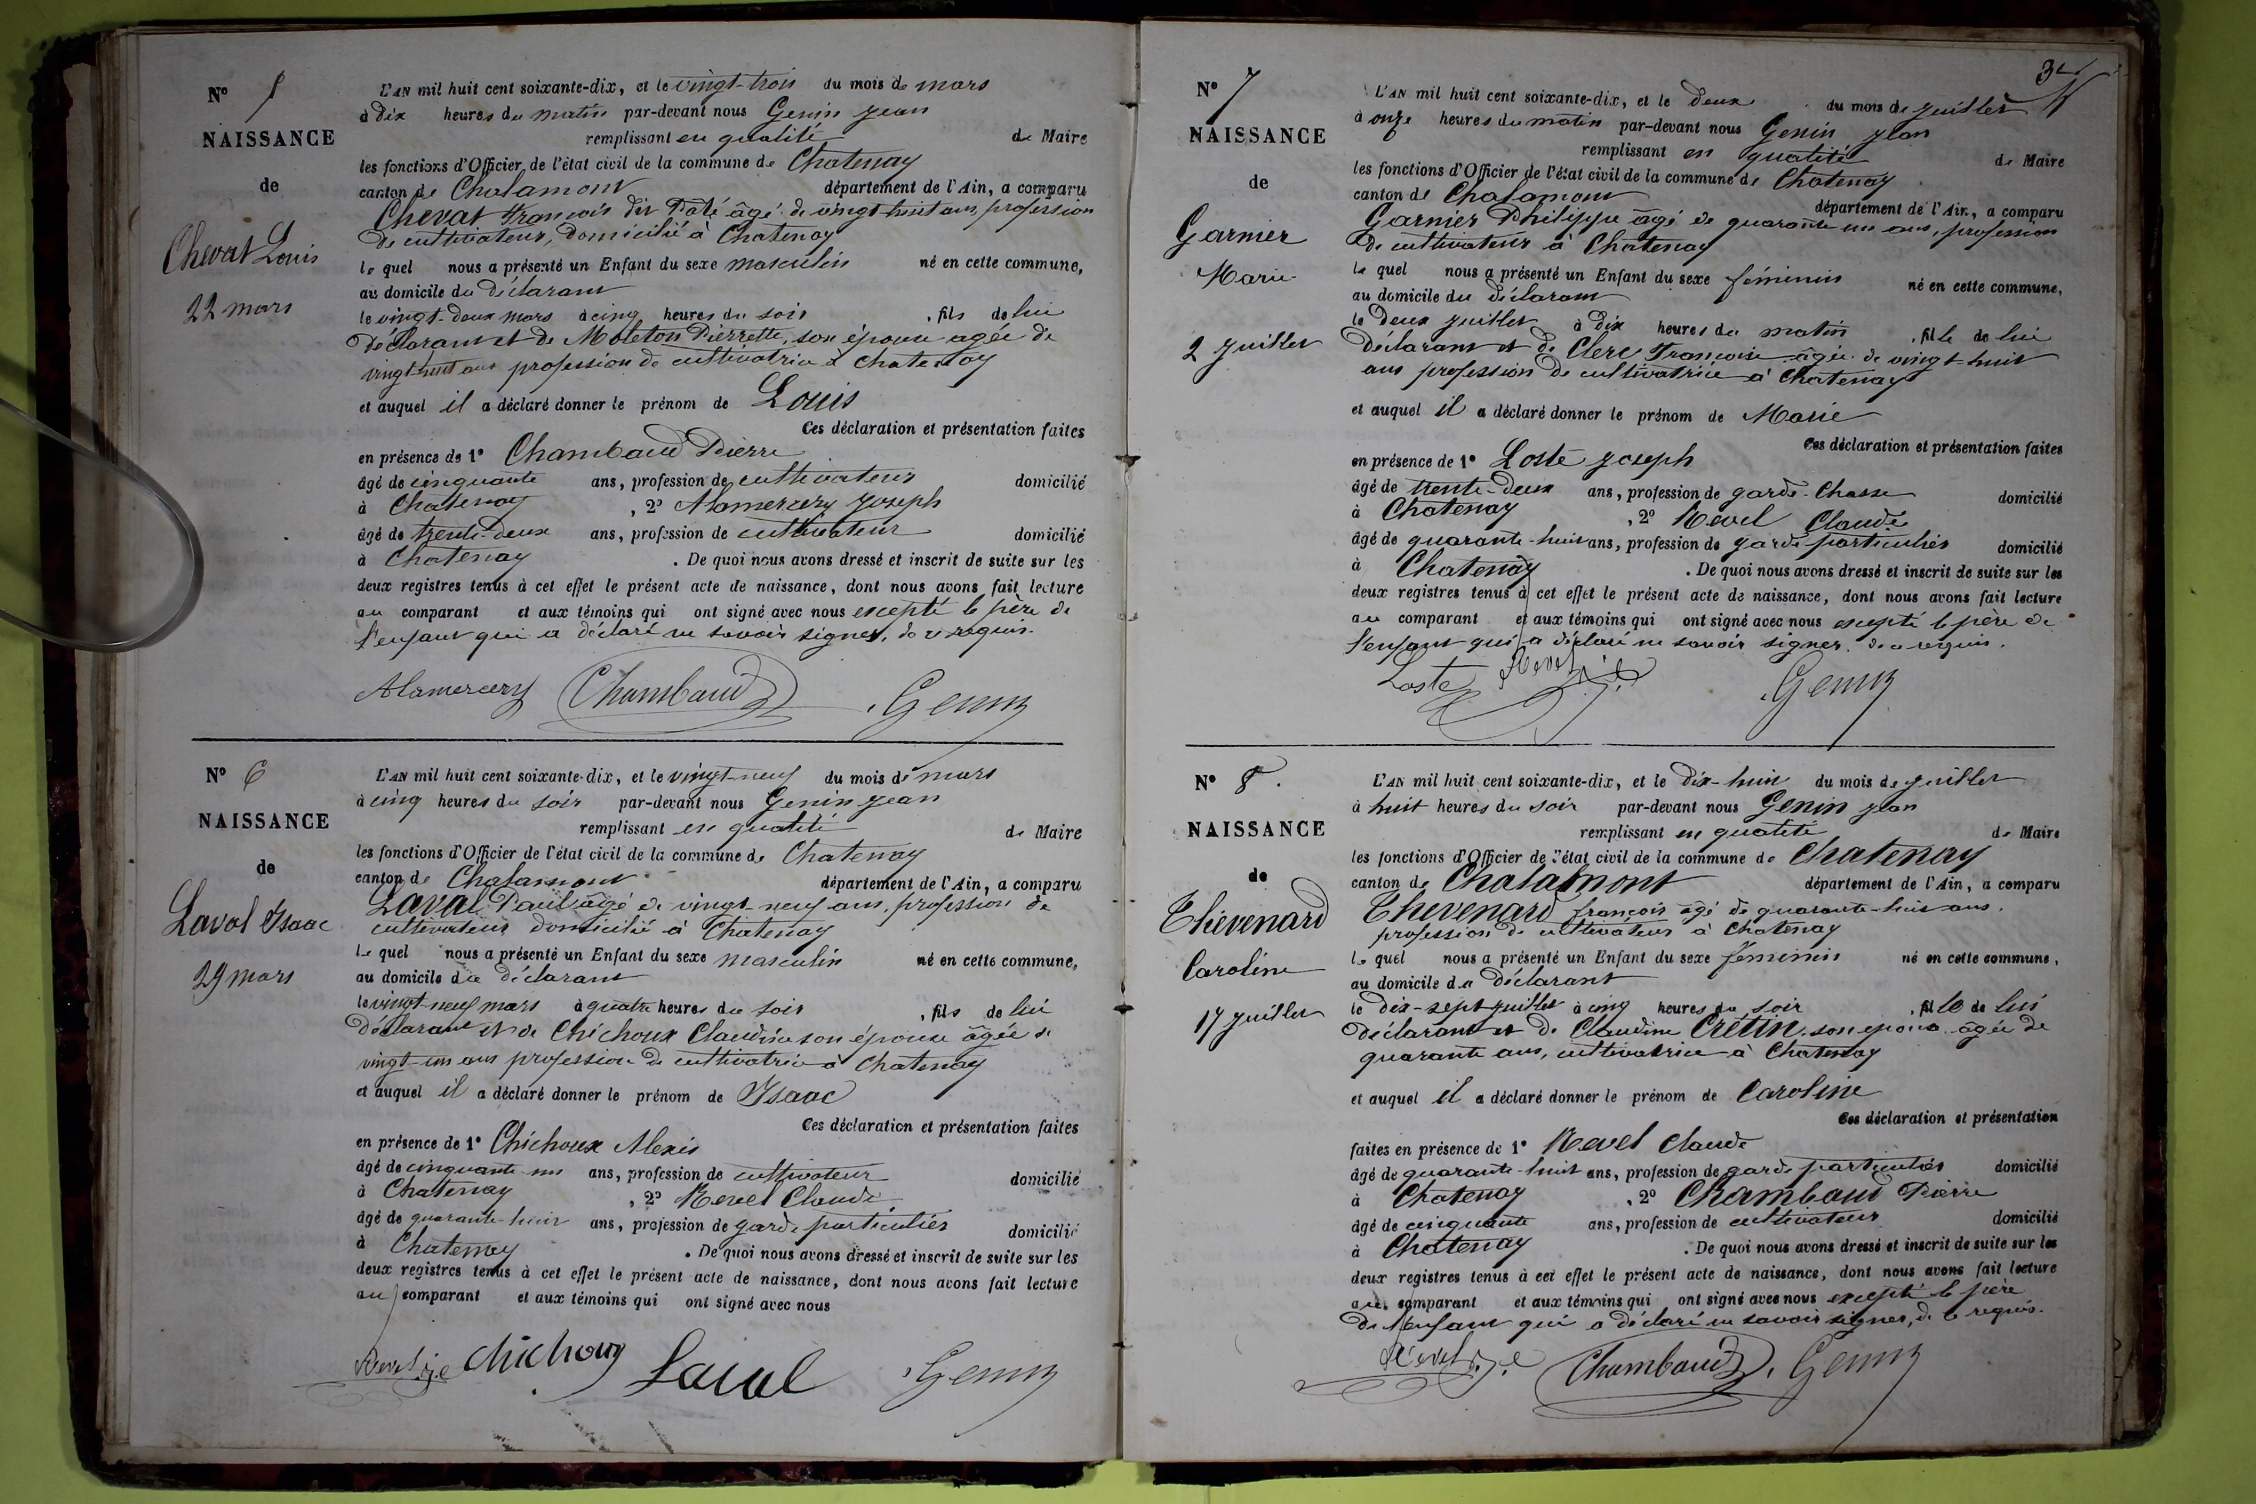 N° 5
NAISSANCE
de
Chevat Louis
22 mars
L'AN mil huit cent soixante-dix, et le vingt-trois du mois de mars
à dix heures du matin par-devant nous Genin Jean
remplissant en qualité de Maire
les fonctions d'Officier de l'état civil de la commune de Chatenay
canton de Chalamont département de l'Ain, a comparu
Chevat François dit Paté âgé de vingt huit ans, profession
de cultivateur, domicilié à Chatenay
le quel nous a présenté un Enfant du sexe masculin né en cette commune,
au domicile du déclarant
le vingt-deux mars à cinq heures du soir, fils de lui
déclarant et de Moleton Pierrette, son épouse agée de
vingt huit ans profession de cultivatrice à Chatenay
et auquel il a déclaré donner le prénom de Louis
Ces déclaration et présentation faites
en présence de 1° Chambaud Pierre
âgé de cinquante ans, profession de cultivateur domicilié
à Chatenay, 2° Alamercery Joseph
âgé de trente-deux ans, profession de cultivateur domicilié
à Chatenay. De quoi nous avons dressé et inscrit de suite sur les
deux registres tenus à cet effet le présent acte de naissance, dont nous avons fait lecture
au comparant et aux témoins qui ont signé avec nous excepté le père de
l'enfant qui a déclaré ne savoir signer, de ce requis.
Alamercery Chambaud Genin
N° 6
NAISSANCE
de
Laval Isaac
29 mars
L'AN mil huit cent soixante-dix, et le vingt-neuf du mois de mars
à cinq heures du soir par-devant nous Genin Jean
remplissant en qualité de Maire
les fonctions d'Officier de l'état civil de la commune de Chatenay
canton de Chalamont département de l'Ain, a comparu
Laval Paul âgé de vingt neuf ans, profession de
cultivateur domicilié à Chatenay
le quel nous a présenté un Enfant du sexe masculin né en cette commune,
au domicile du déclarant
le vingt-neuf mars à quatre heures du soir, fils de lui
Déclarant et de Chichoux Claudine son épouse âgée de
vingt-un ans profession de cultivatrice à Chatenay
et auquel il a déclaré donner le prénom de Isaac
Ces déclaration et présentation faites
en présence de 1° Chichoux Alexis
âgé de cinquante-un ans, profession de cultivateur domicilié
à Chatenay, 2° Revel Claude
âgé de quarante-huit ans, profession de garde particulier domicilié
à Chatenay. De quoi nous avons dressé et inscrit de suite sur les
deux registres tenus à cet effet le présent acte de naissance, dont nous avons fait lecture
au comparant et aux témoins qui ont signé avec nous
Revel Chichoux Laval Genin
3
N° 7
NAISSANCE
de
Garnier
Marie
2 Juillet
L'AN mil huit cent soixante-dix, et le deux du mois de juillet
à onze heures du matin par-devant nous Genin Jean
remplissant en qualité de Maire
les fonctions d'Officier de l'état civil de la commune de Chatenay
canton de Chalamont département de l'Ain, a comparu
Garnier Philippe âgé de quarante un ans, profession
de cultivateur à Chatenay
le quel nous a présenté un Enfant du sexe féminin né en cette commune,
au domicile du déclarant
le deux juillet à dix heures du matin, fille de lui
déclarant et de Clerc Françoise âgée de vingt-huit
ans profession de cultivatrice à Chatenay
et auquel il a déclaré donner le prénom de Marie
Ces déclaration et présentation faites
en présence de 1° Loste Joseph
âgé de trente-deux ans, profession de garde-chasse domicilié
à Chatenay, 2° Revel Claude
âgé de quarante-huit ans, profession de garde particulier domicilié
à Chatenay. De quoi nous avons dressé et inscrit de suite sur les
deux registres tenus à cet effet le présent acte de naissance, dont nous avons fait lecture
au comparant et aux témoins qui ont signé avec nous excepté le père de
l'enfant qui a déclaré ne savoir signer, de ce requis.
Loste Revel Genin
N° 8.
NAISSANCE
de
Thévenard
Caroline
17 juillet
L'AN mil huit cent soixante-dix, et le dix-huit du mois de juillet
à huit heures du soir par-devant nous Genin Jean
remplissant en qualité de Maire
les fonctions d'Officier de l'état civil de la commune de Chatenay
canton de Chalamont département de l'Ain, a comparu
Thévenard françois âgé de quarante-huit ans.
profession de cultivateur à Chatenay
le quel nous a présenté un Enfant du sexe féminin né en cette commune,
au domicile du déclarant
le dix-sept juillet à cinq heures du soir, fille de lui
déclarant et de Claudine Crétin son épouse âgée de
quarante ans, cultivatrice à Chatenay
et auquel il a déclaré donner le prénom de Caroline
Ces déclaration et présentation
faites en présence de 1° Revel Claude
âgé de quarante-huit ans, profession de garde particulier domicilié
à Chatenay, 2° Chambaud Pierre
âgé de cinquante ans, profession de cultivateur domicilié
à Chatenay. De quoi nous avons dressé et inscrit de suite sur les
deux registres tenus à cet effet le présent acte de naissance, dont nous avons fait lecture
au comparant et aux témoins qui ont signé avec nous excepté le père
de l'enfant qui a déclaré ne savoir signer, de ce requis.
Revel Chambaud Genin